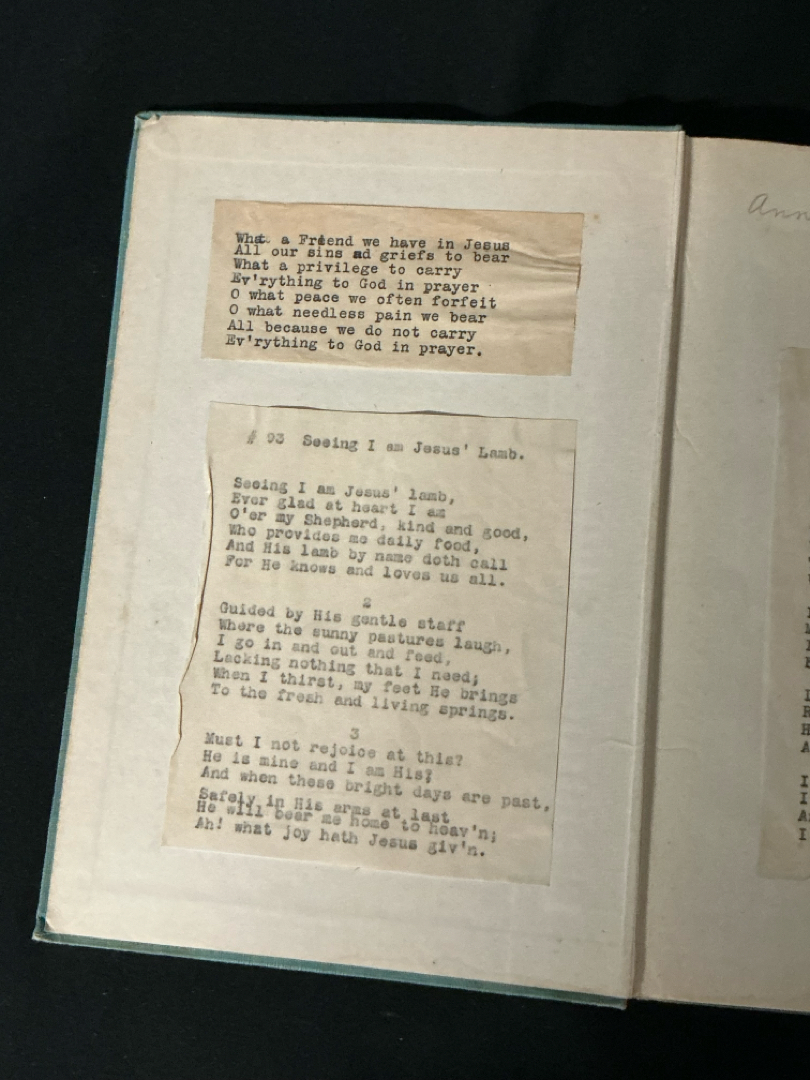 What a Friend we have in Jesus
All our sins ad griefs to bear
What a privilege to carry
Ev'rything to God in prayer
O what peace we often forfeit
O what needless pain we bear
All because we do not carry
Ev'rything to God in prayer.
# 93 Seeing I am Jesus' Lamb.
Seeing I am Jesus' lamb,
Ever glad at heart I am
O'er my Shepherd, kind and good,
Who provides me daily food,
And His lamb by name doth call
For He knows and loves us all.
2
Guided by His gentle staff
Where the sunny pastures laugh,
I go in and out and feed,
Lacking nothing that I need;
When I thirst, my feet He brings
To the fresh and living springs.
3
Must I not rejoice at this?
He is mine and I am His;
And when these bright days are past,
Safely in His arms at last
He will bear me home to heav'n;
Ah! what joy hath Jesus giv'n.
Ann